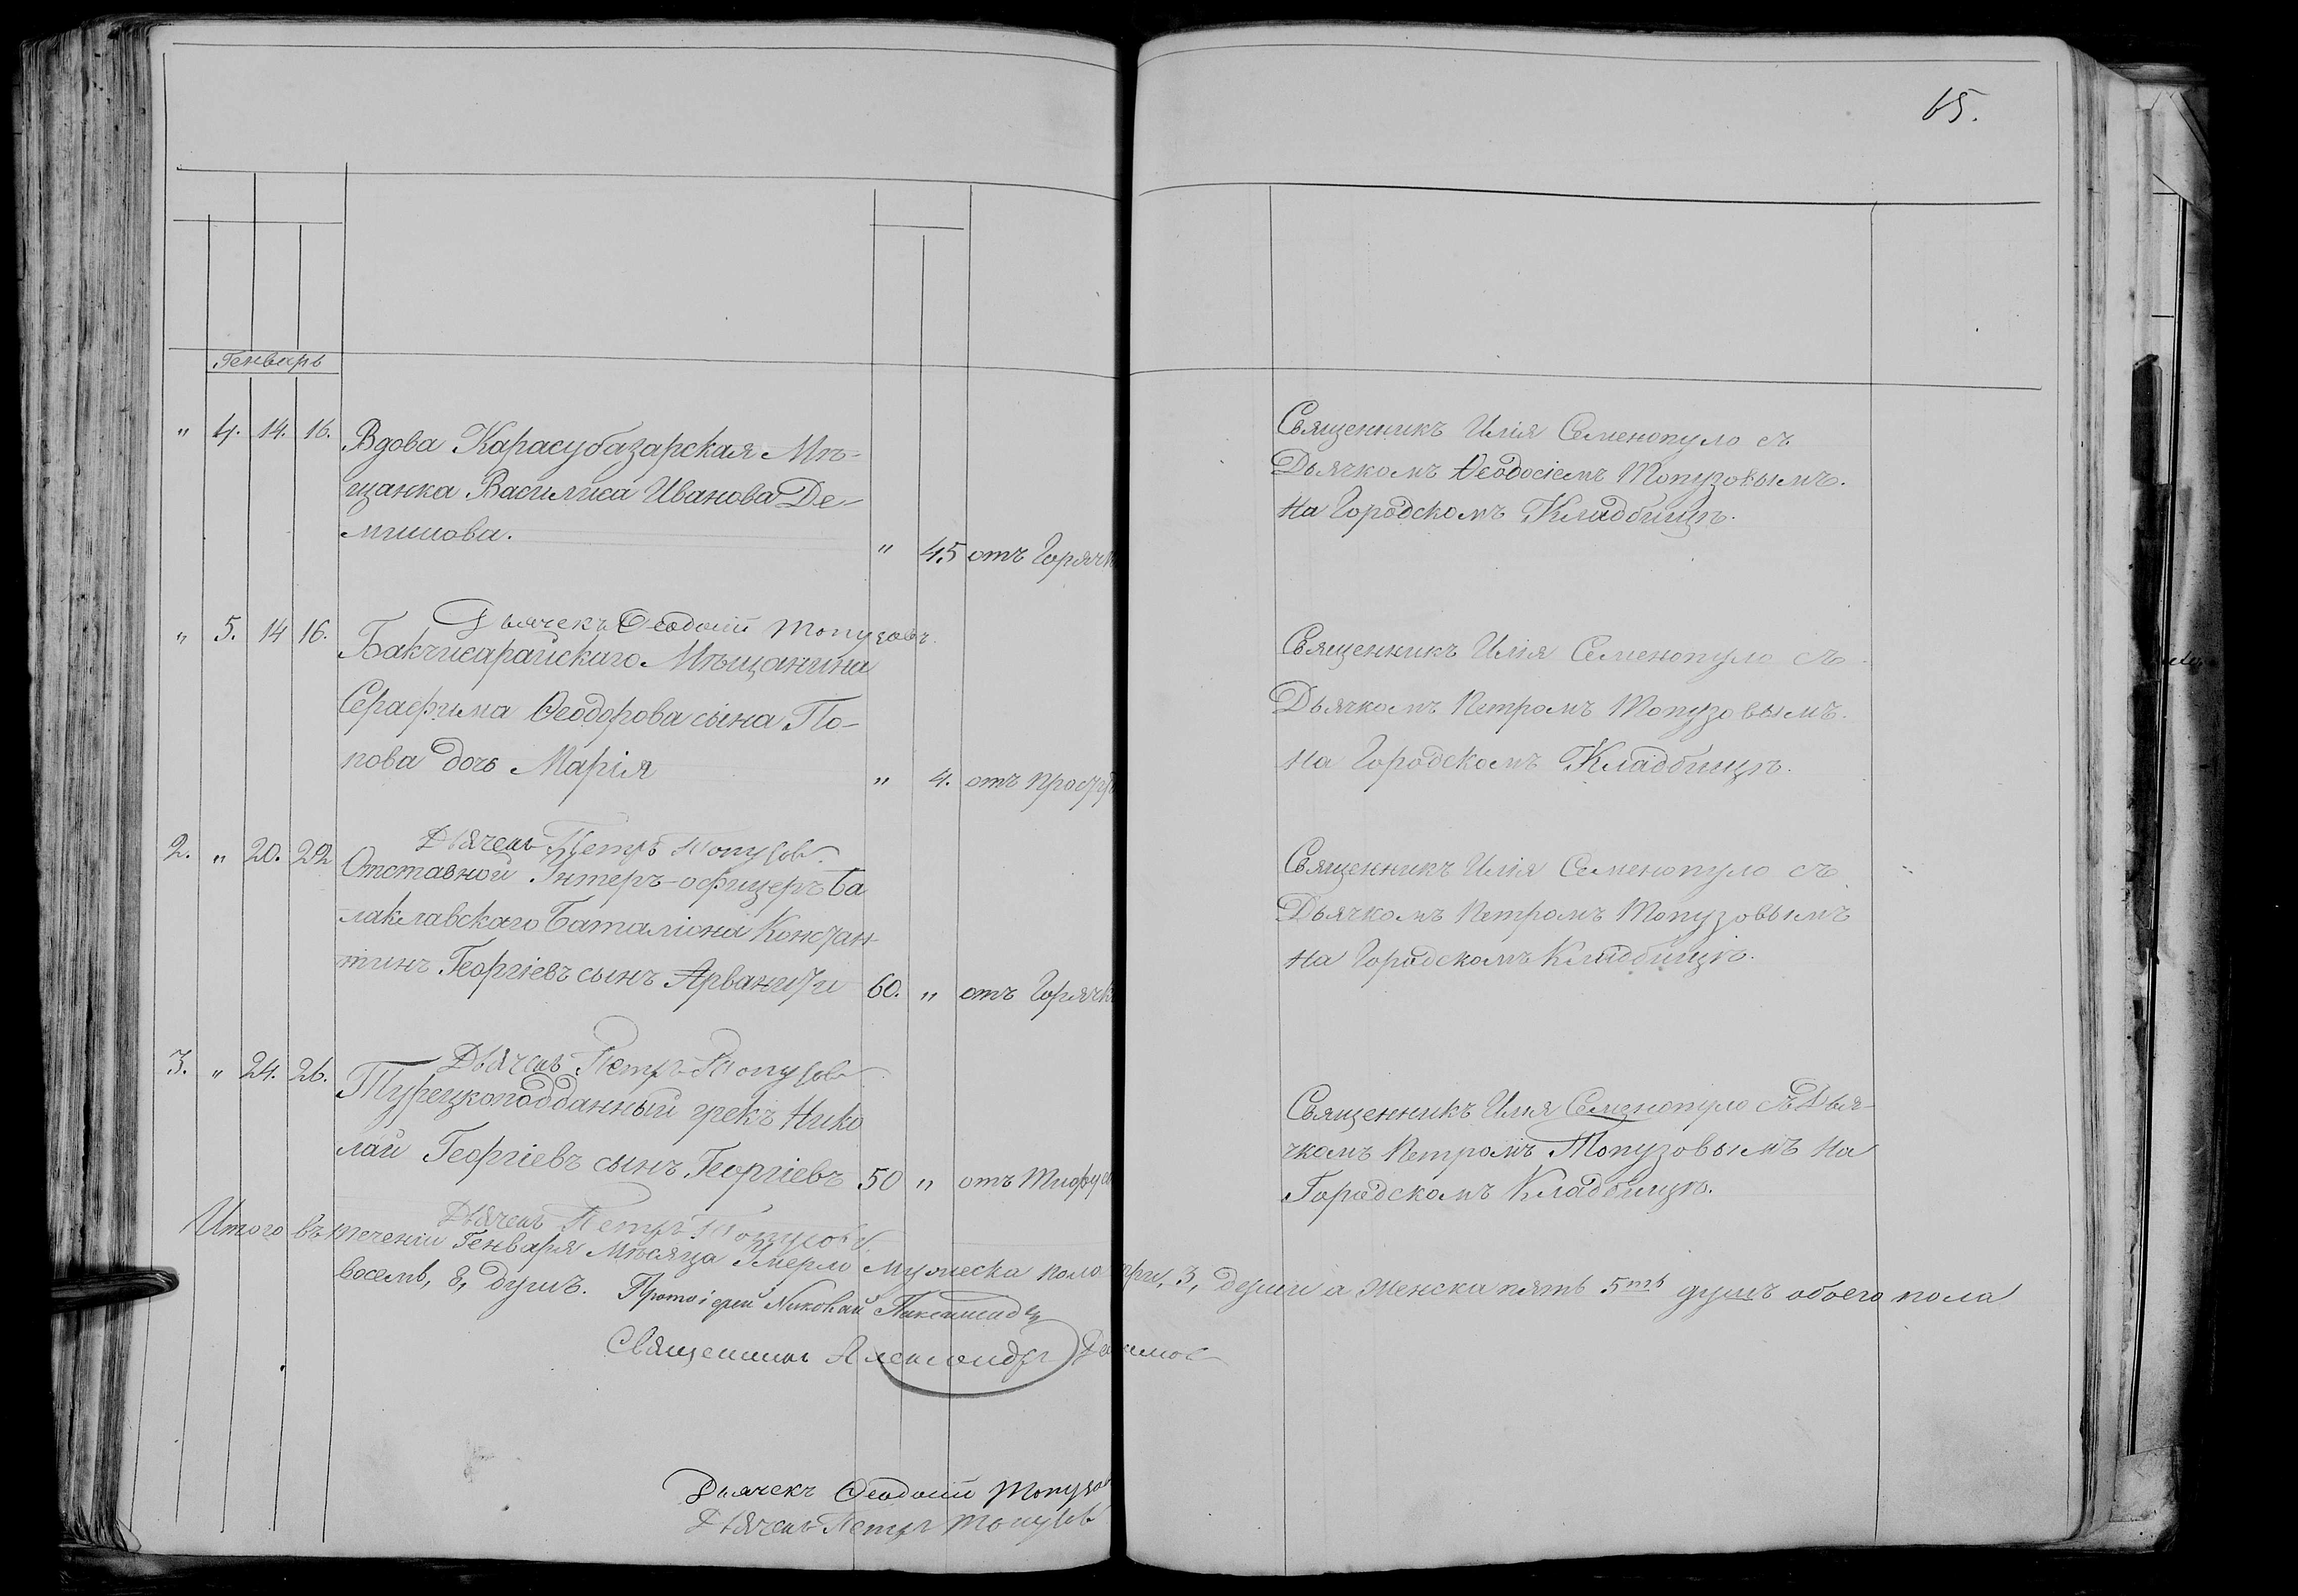 65.
Генварь
" 4. 14. 16. Вдова Карасубазарская Мѣ-
щанка Василиса Иванова Де-
мишова. " 45 отъ Горячк
Священникъ Илія Семенопуло съ
Дьячкомъ Ѳеодосіемъ Топузовымъ.
на Городскомъ Кладбищѣ.
Дьячекъ Ѳеодосій Топузовъ.
" 5. 14 16. Бакчисарайскаго Мѣщанина
Серафима Ѳеодорова сына По-
пова дочь Марія " 4. отъ простуд
Священникъ Илія Семенопуло съ
Дьячкомъ Петромъ Топузовымъ.
на Городскомъ Кладбищѣ.
Дьячекъ Петръ Топузовъ.
2. " 20. 22 Отставной Унтеръ-офицеръ Ба
лаклавскаго Баталіона Констан-
тинъ Георгіевъ сынъ Арванити 60. " отъ Горячк
Священникъ Илія Семенопуло съ
Дьячкомъ Петромъ Топузовымъ
на Городскомъ Кладбищѣ.
Дьячекъ Петръ Топузовъ
3. " 24. 26. Турецкоподданный грекъ Нико
лай Георгіевъ сынъ Георгіевъ 50 " отъ Тифуса
Священникъ Илія Семенопуло съ Дья-
чкомъ Петромъ Топузовымъ на
Городскомъ Кладбищѣ.
Дьячекъ Петръ Топузовъ.
Итого въ теченіи Генваря Мѣсяца Умерло мужеска пола три, 3, души а женска пять 5ть душъ обоего пола
восемь, 8, душъ. Протоіерей Николай
Священникъ Александръ
Дьячекъ Ѳеодосій Топузов
Дьячекъ Петръ Топузовъ